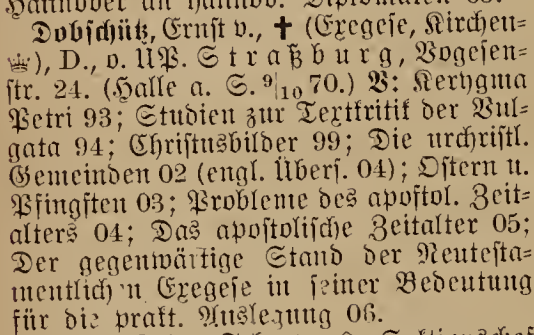 Dobschütz, Ernst v., ✝ (Exegese, Kirchen=
), D., o. UP. Straßburg, Vogesen=
str. 24. (Halle a. S. 9/10 70.) V: Kerygma
Petri 93; Studien zur Textkritik der Vul=
gata 94; Christusbilder 99; Die urchristl.
Gemeinden 02 (engl. Übers. 04); Ostern u.
Pfingsten 03; Probleme des apostol. Zeit=
alters 04; Das apostolische Zeitalter 05;
Der gegenwärtige Stand der Neutesta=
mentlich n Exegese in seiner Bedeutung
für die prakt. Auslegung 06.